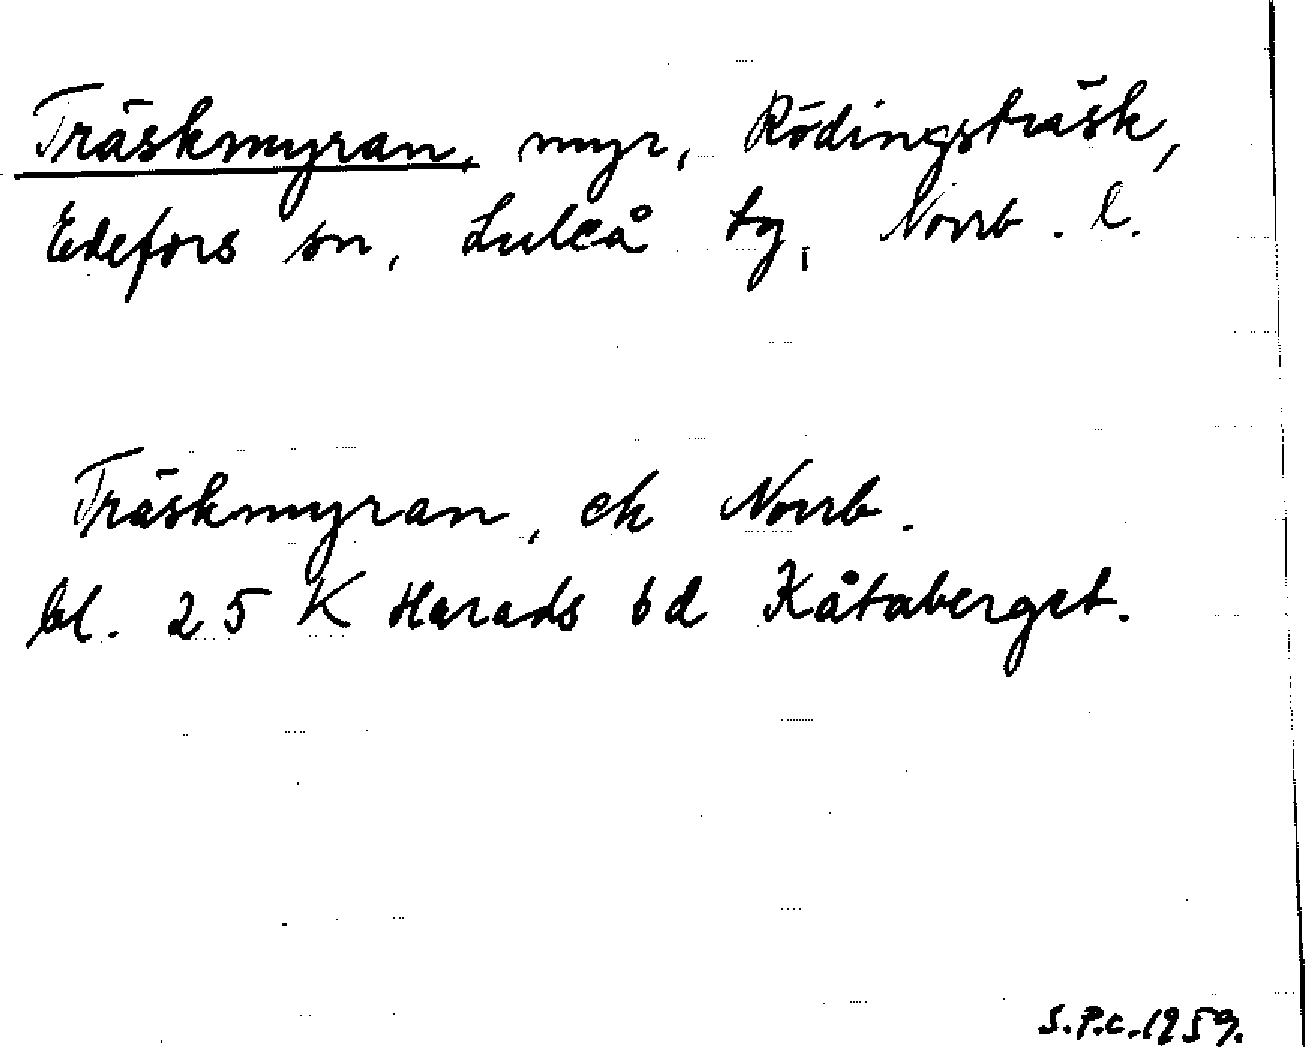 Träskmyran, myr, Rödingsträsk,
Edefors sn, Luleå tg, Norrb. l.
Träskmyran, ek Norrb.
bl. 25 K Harads 6d Kåtaberget.
S.P.C. 1959.